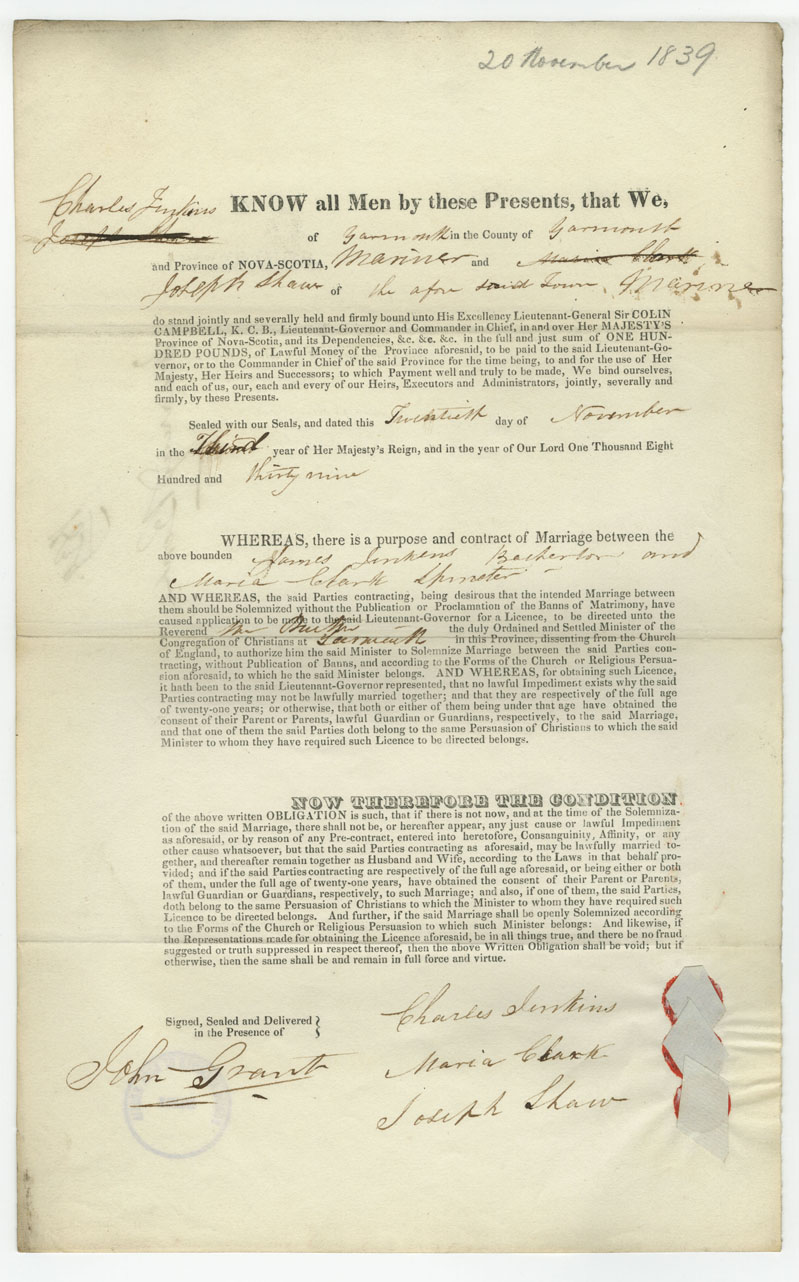 20 November 1839
Charles Jenkins KNOW all Men by these Presents, that We,
Joseph Shaw of Yarmouth in the County of Yarmouth
and Province of NOVA-SCOTIA, Mariner and Maria Clark
Joseph Shaw of the afore said Town, Mariner
do stand jointly and severally held and firmly bound unto His Excellency Lieutenant-General Sir COLIN
CAMPBELL, K. C. B., Lieutenant-Governor and Commander in Chief, in and over Her MAJESTY'S
Province of Nova-Scotia, and its Dependencies, &c. &c. &c. in the full and just sum of ONE HUN-
DRED POUNDS, of Lawful Money of the Province aforesaid, to be paid to the said Lieutenant-Go-
vernor, or to the Commander in Chief of the said Province for the time being, to and for the use of Her
Majesty, Her Heirs and Successors; to which Payment well and truly to be made, We bind ourselves,
and each of us, our, each and every of our Heirs, Executors and Administrators, jointly, severally and
firmly, by these Presents.
Sealed with our Seals, and dated this Twentieth day of November
in the Third year of Her Majesty's Reign, and in the year of Our Lord One Thousand Eight
Hundred and thirty nine
WHEREAS, there is a purpose and contract of Marriage between the
above bounden James Jenkens and
Maria Clark Spinster
AND WHEREAS, the said Parties contracting, being desirous that the intended Marriage between
them should be Solemnized without the Publication or Proclamation of the Banns of Matrimony, have
caused application to be made to the said Lieutenant-Governor for a Licence, to be directed unto the
Reverend the duly Ordained and Settled Minister of the
Congregation of Christians at Yarmouth in this Province, dissenting from the Church
of England, to authorize him the said Minister to Solemnize Marriage between the said Parties con-
tracting, without Publication of Banns, and according to the Forms of the Church or Religious Persua-
sion aforesaid, to which he the said Minister belongs. AND WHEREAS, for obtaining such Licence,
it hath been to the said Lieutenant-Governor represented, that no lawful Impediment exists why the said
Parties contracting may not be lawfully married together; and that they are respectively of the full age
of twenty-one years; or otherwise, that both or either of them being under that age have obtained the
consent of their Parent or Parents, lawful Guardian or Guardians, respectively, to the said Marriage,
and that one of them the said Parties doth belong to the same Persuasion of Christians to which the said
Minister to whom they have required such Licence to be directed belongs.
NOW THEREFORE THE CONDITION
of the above written OBLIGATION is such, that if there is not now, and at the time of the Solemniza-
tion of the said Marriage, there shall not be, or hereafter appear, any just cause or lawful Impediment
as aforesaid, or by reason of any Pre-contract, entered into heretofore, Consanguinity, Affinity, or any
other cause whatsoever, but that the said Parties contracting as aforesaid, may be lawfully married to-
gether, and thereafter remain together as Husband and Wife, according to the Laws in that behalf pro-
vided; and if the said Parties contracting are respectively of the full age aforesaid, or being either or both
of them, under the full age of twenty-one years, have obtained the consent of their Parent or Parents,
lawful Guardian or Guardians, respectively, to such Marriage; and also, if one of them, the said Parties,
doth belong to the same Persuasion of Christians to which the Minister to whom they have required such
Licence to be directed belongs. And further, if the said Marriage shall be openly Solemnized according
to the Forms of the Church or Religious Persuasion to which such Minister belongs: And likewise, if
the Representations made for obtaining the Licence aforesaid, be in all things true, and there be no fraud
suggested or truth suppressed in respect thereof, then the above Written Obligation shall be void; but if
otherwise, then the same shall be and remain in full force and virtue.
Signed, Sealed and Delivered
in the Presence of
Charles Jenkins
John Grant
Maria Clark
Joseph Shaw